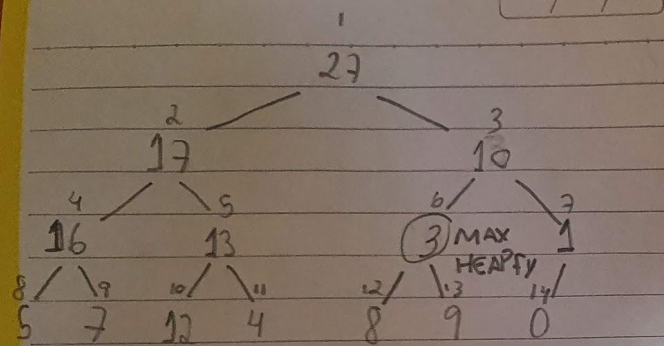 1
27
2 3
17 10
4 5 6 7
16 13 3 MAX 1
HEAPFY
8 9 10 11 12 13 14
5 7 12 4 8 9 0